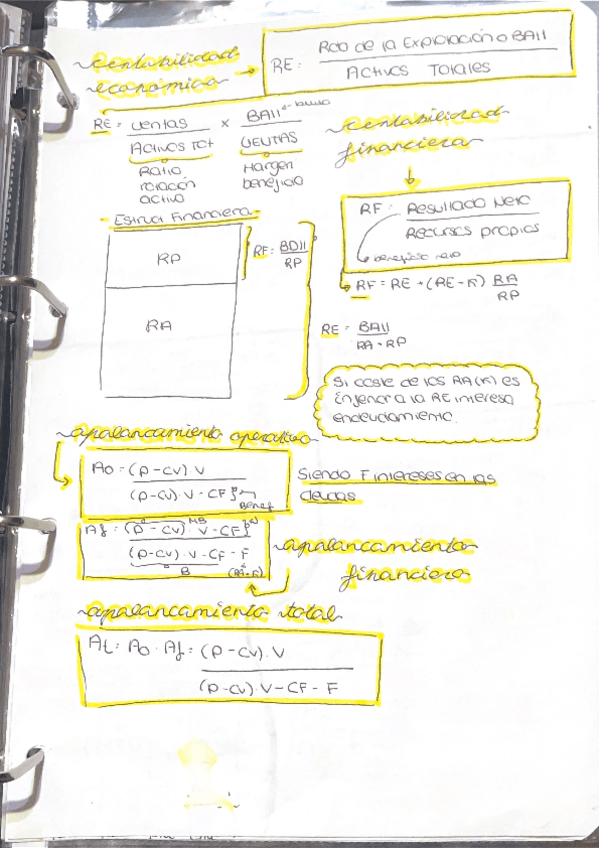 rentabilidad
económica → RE = Rdo de la Explotación o BAII / Activos Totales
RE = Ventas / Activos Tot x BAII / VENTAS
Ratio rotación activo
Margen beneficio
rentabilidad
financiera
RF = Resultado Neto / Recursos propios
beneficio neto
RF = RE + (RE - K) RA / RP
Estruct Financiera
RP
RF = BDII / RP
RA
RE = BAII / RA + RP
Si coste de los RA (K) es
inferior a la RE interesa
endeudamiento.
apalancamiento operativo
Ao = (p - cv) V / (p - cv) · V - CF
Benef
Siendo F intereses en las
deudas
Af = (p - cv) V - CF / (p - cv) · V - CF - F
B
(RA · K)
apalancamiento
financiero
apalancamiento total
At = Ao · Af = (p - cv) · V / (p - cv) · V - CF - F